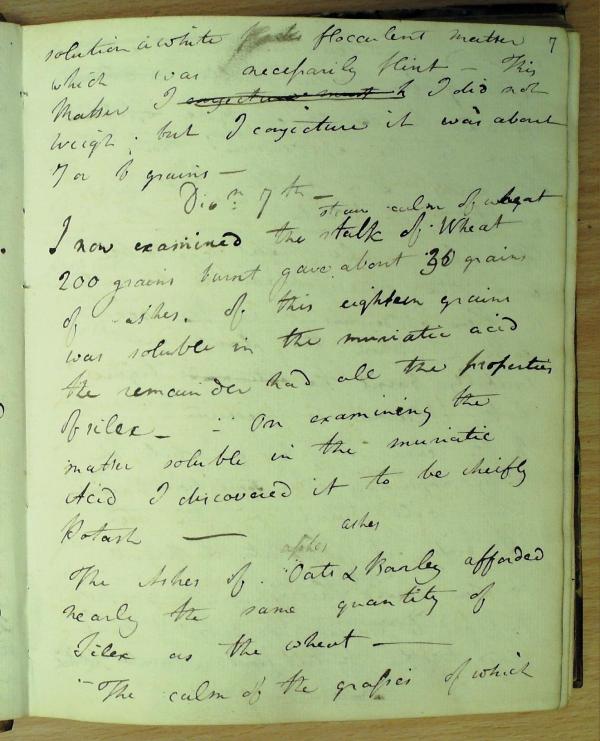 7
solution a white flocculent matter
which was necessarily flint – This
Matter I conjecture must I did not
weigh; but I conjecture it was about
7 or 6 grains –
Dion 7th –
straw culm of wheat
I now examined the stalk of Wheat
200 grains burnt gave about 36 grains
of ashes. Of this eighteen grains
was soluble in the muriatic acid
the remainder had all the properties
of silex – On examining the
matter soluble in the muriatic
Acid I discovered it to be cheifly
Potash —
ashes
ashes
The Ashes of Oats & Barley afforded
nearly the same quantity of
Silex as the wheat —
The culm of the grasses of which